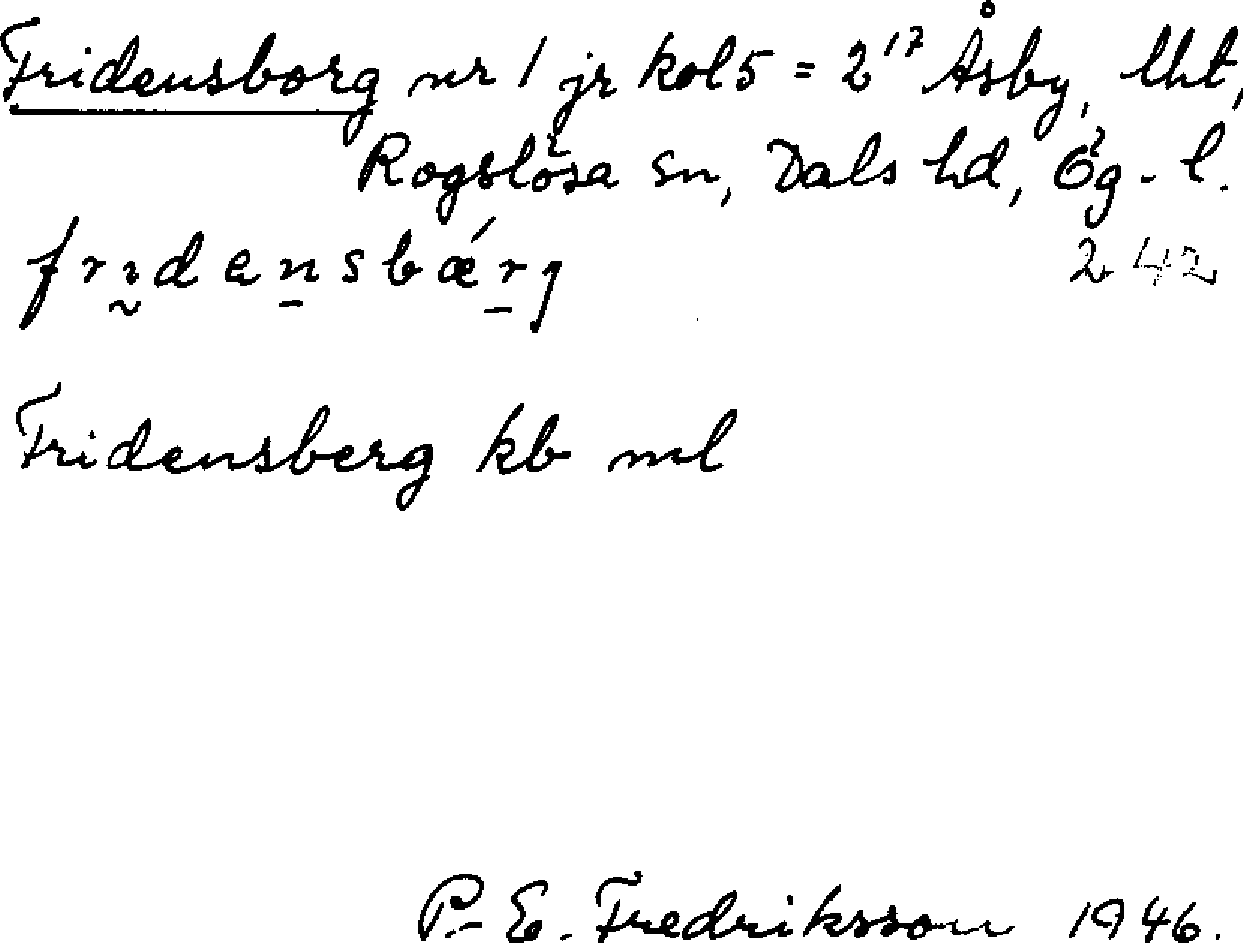 Fridensborg nr 1 jr kol 5 = 2¹⁷ Åsby, lht,
Rogslösa sn, Dals hd, Ög. l.
fridensbǽrj 242
Fridensberg kb ml
P.-E. Fredriksson 1946.